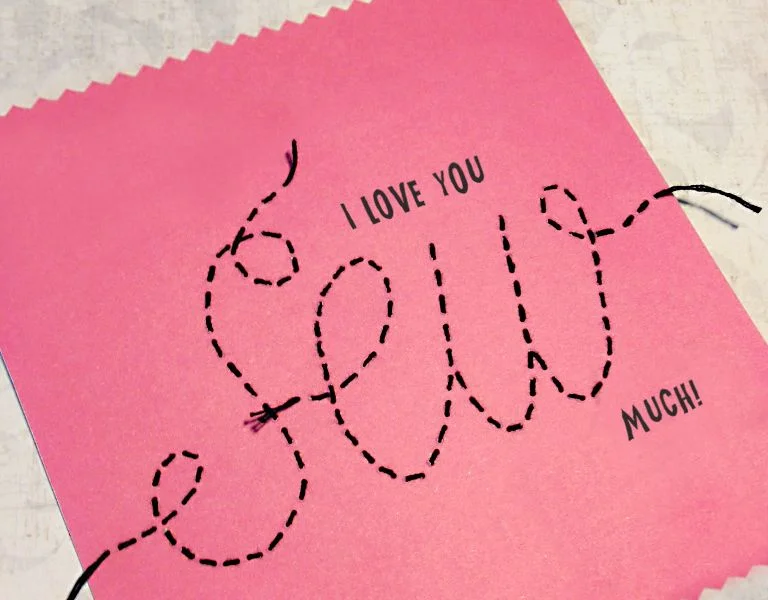 I LOVE YOU
Sew
MUCH!